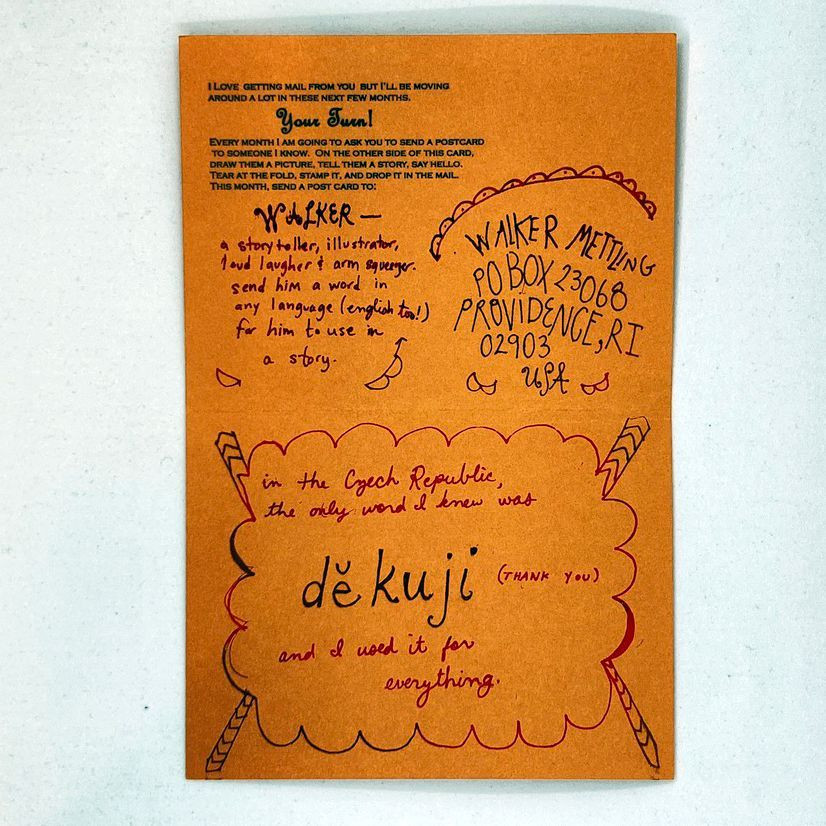 I LOVE GETTING MAIL FROM YOU BUT I'LL BE MOVING
AROUND A LOT IN THESE NEXT FEW MONTHS.
Your Turn!
EVERY MONTH I AM GOING TO ASK YOU TO SEND A POSTCARD
TO SOMEONE I KNOW. ON THE OTHER SIDE OF THIS CARD,
DRAW THEM A PICTURE, TELL THEM A STORY, SAY HELLO.
TEAR AT THE FOLD, STAMP IT, AND DROP IT IN THE MAIL.
THIS MONTH, SEND A POST CARD TO:
WALKER —
a storyteller, illustrator,
loud laugher & arm squeezer.
send him a word in
any language (english too!)
for him to use in
a story.
WALKER METTLING
PO BOX 23068
PROVIDENCE, RI
02903
USA
in the Czech Republic,
the only word I knew was
děkuji (THANK YOU)
and I used it for
everything.